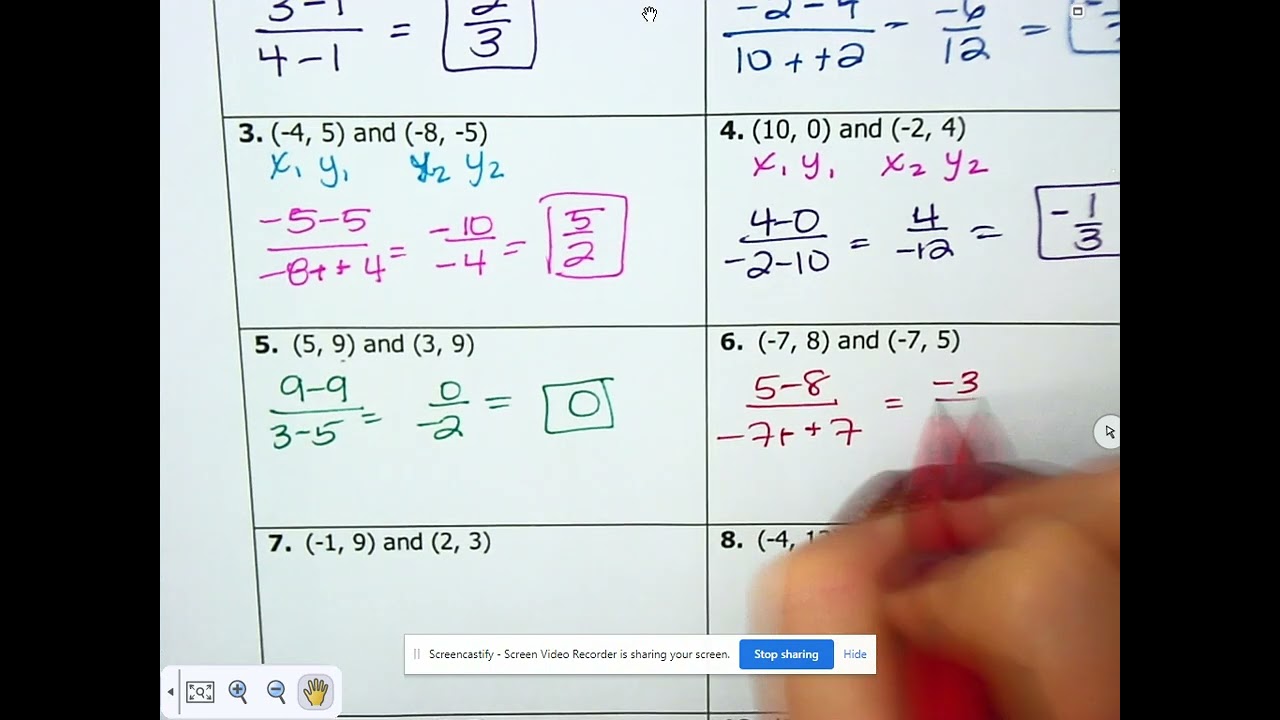 3-1
4-1
=
2
3
-2-4
10++2
=
-6
12
=
3. (-4, 5) and (-8, -5)
x₁ y₁ x₂ y₂
-5-5
-8++4
=
-10
-4
=
5
2
4. (10, 0) and (-2, 4)
x₁ y₁ x₂ y₂
4-0
-2-10
=
4
-12
=
-1
3
5. (5, 9) and (3, 9)
9-9
3-5
=
0
-2
=
0
6. (-7, 8) and (-7, 5)
5-8
-7++7
=
-3
7. (-1, 9) and (2, 3)
8. (-4,
Screencastify - Screen Video Recorder is sharing your screen.
Stop sharing
Hide